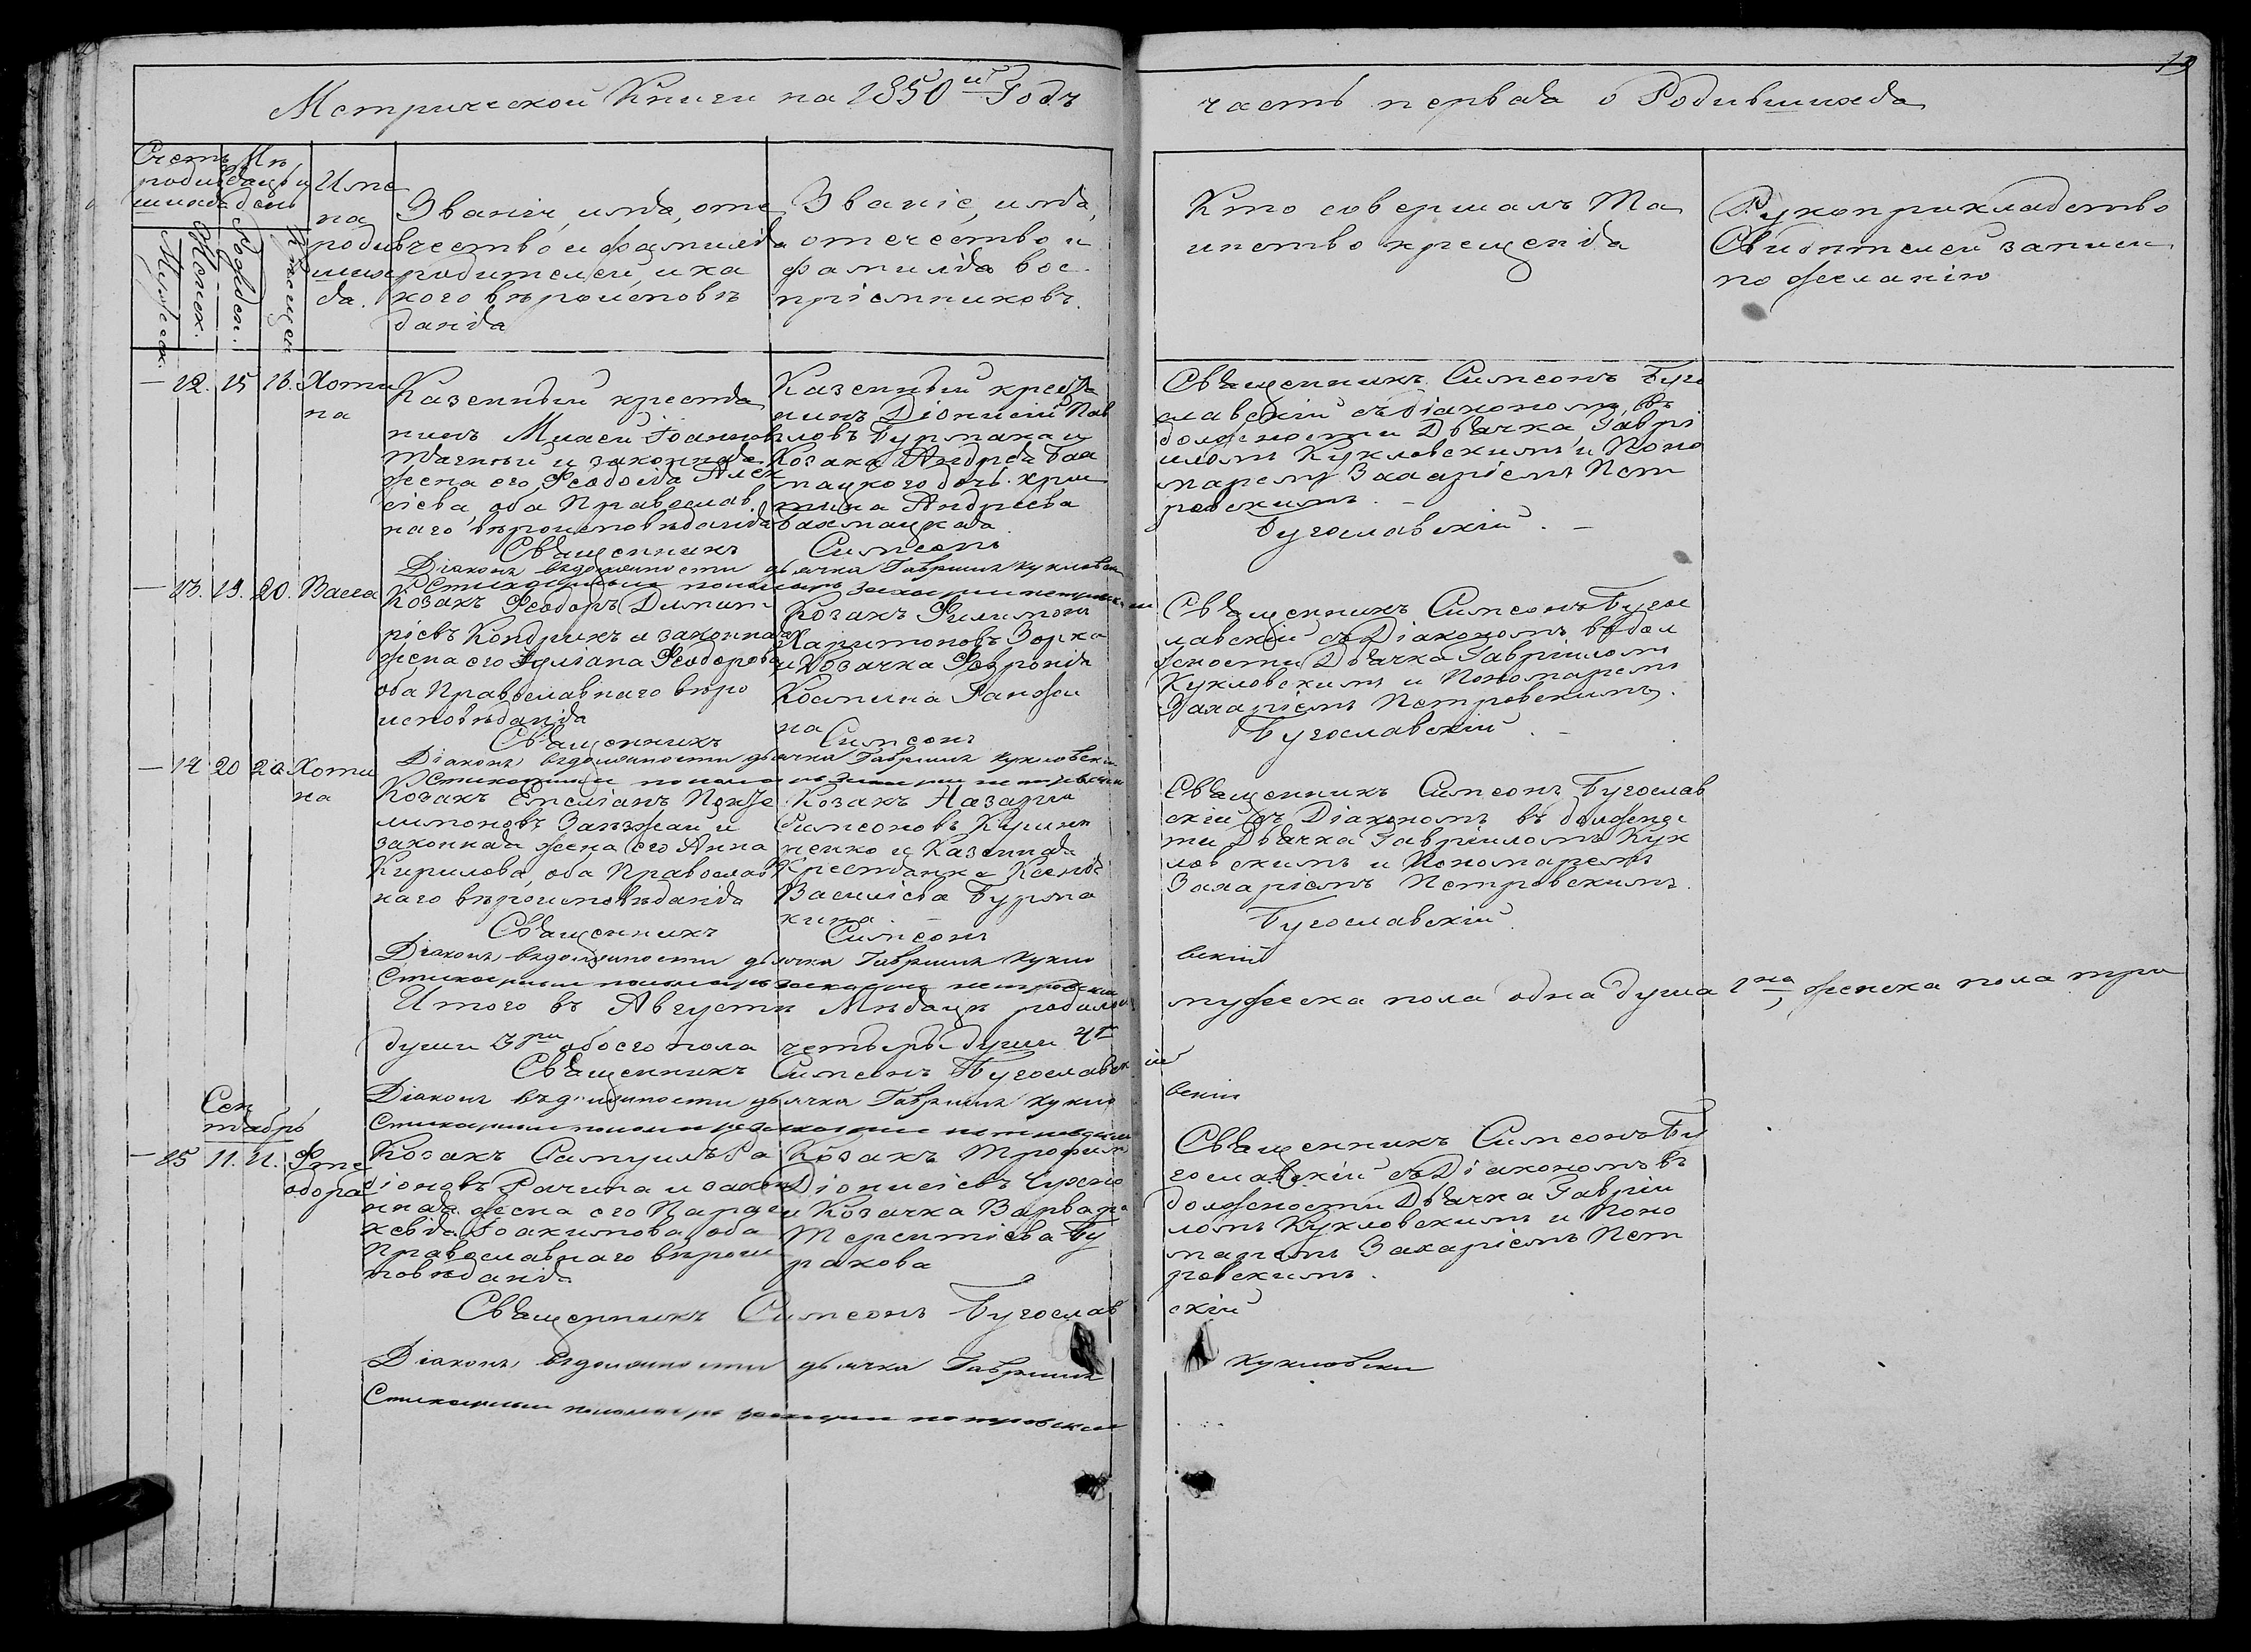 19
Метрической Книги на 1850й Годъ
часть первая о Родившихся
Счетъ родившихся
Мужеск.
Женск.
Мѣсяцъ и день
Рожден.
Крещен.
Имена родившихся.
Званіе, имя, оте
чество, и фамилія
родителей, и ка
кого вѣроисповѣ
данія
Званіе, имя,
отечество и
фамилія вос
пріемниковъ.
Кто совершалъ Та
инство крещенія
Рукоприкладство
Свидѣтелей записи
по желанію
— 12. 15 16. Хоти
на
Казенный крестья
нинъ Михей Іоаннов
и законная
жена его Феодосія Алек
сіева, оба Православ
наго вѣроисповѣданія
Казенный крестья
нинъ Діонисій Пав
ловъ Бурмака и
Козака Андрея Бах
мацкого дочь Хрис
тина Андріева
Бахмацкая
Священникъ Симеонъ Буго
славскій съ діакономъ, въ
должности Дьячка Гаврі
иломъ Кукловскимъ и Поно
маремъ Захаріемъ Пет
ровскимъ. —
Священникъ Симеонъ
Бугославскій. —
Діаконъ въ должности дьячка Гавриилъ Кукловски
Стихарный пономарь Захарии Петровскии
— 13. 19. 20. Васса
Козакъ Феодоръ Димит
ріевъ Кондрикъ и законная
жена его Іуліана Феодорова
оба Православнаго вѣро
исповѣданія
Козакъ Филимонъ
Харитоновъ Зорка
и Козачка Февронія
Космина Ганжи
на
Священникъ Симеонъ Бугос
лавскій съ Діакономъ въ дол
жности Дьячка Гавріиломъ
Кукловскимъ и Пономаремъ
Захаріемъ Петровскимъ.
Священникъ Симеонъ
Бугославскій. —
Діаконъ въ должности дьячка Гавриилъ Кукловски
Стихарный пономарь Захарии Петровскии
— 14 20 20 Хоти
на
Козакъ Емеліанъ
законная жена его Анна
Кирилова, оба Православ
наго вѣроисповѣданія
Козакъ Назарій
Симеоновъ
ненко и Казенная
Крестьянка Ксенія
Василіева Бурма
кина. —
Священникъ Симеонъ Бугослав
скій съ Діакономъ въ должнос
ти Дьячка Гавріиломъ Кук
ловскимъ и Пономаремъ
Захаріемъ Петровскимъ.
Священникъ Симеонъ
Бугославскій.
Діаконъ въ должности дьячка Гавриилъ Кукло
вскій
Стихарный пономарь Захарии Петровскии
Итого въ Августѣ Мѣсяцѣ родилось
мужеска пола одна душа 1на, женска пола три
души 3ри обоего пола четыре души 4е
Священникъ Симеонъ Бугославск
ій
Діаконъ въ должности дьячка Гавриилъ Кукло
вскіи
Стихарный пономарь Захарии Петровскии
Сен
тябрь
— 15 11. 11. Фео
дора
Козакъ Самуилъ
діоновъ Рачина и закон
ная жена его Параск
кевія Іоакимова, оба
Православнаго вѣроис
повѣданія
Козакъ Трофимъ
Діонисіевъ
и Козачка Варвара
Терентіева Бу
ракова
Священникъ Симеонъ Бу
гославскій съ Діакономъ въ
должности Дьячка Гавріи
ломъ Кукловскимъ и Поно
маремъ Захаріемъ Пет
ровскимъ.
Священникъ Симеонъ Бугослав
скій
Діаконъ въ должности дьячка Гавриилъ
Кукловски
Стихарный пономарь Захарии Петровскии